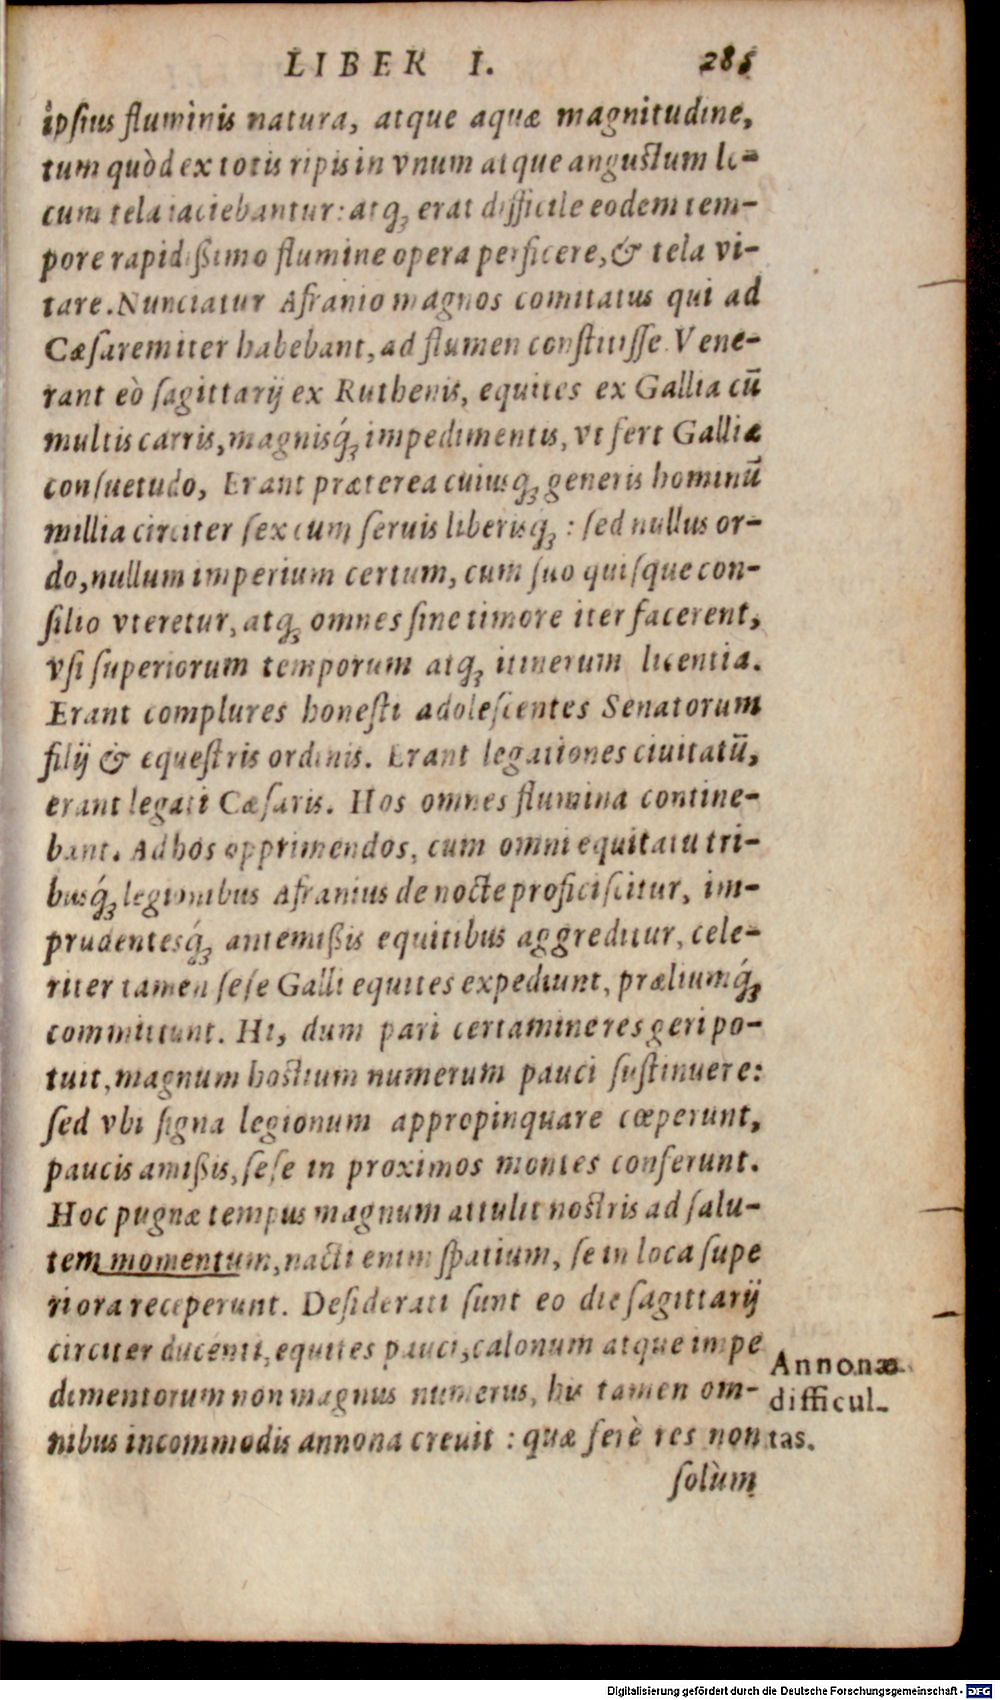 LIBER I. 285
ipſius fluminis natura, atque aquæ magnitudine,
tum quòd ex totis ripis in vnum atque anguſtum lo-
cum tela iaciebantur: atq́; erat difficile eodem tem-
pore rapidißimo flumine opera perficere, & tela vi-
tare. Nunciatur Afranio magnos comitatus qui ad
Cæſarem iter habebant, ad flumen conſtitiſſe. Vene-
rant eò ſagittarij ex Ruthenis, equites ex Gallia cū
multis carris, magnisq́; impedimentis, vt fert Galliæ
conſuetudo, Erant præterea cuiusq; generis hominū
millia circiter ſex cum ſeruis liberisq́; : ſed nullus or-
do, nullum imperium certum, cum ſuo quiſque con-
ſilio vteretur, atq; omnes ſine timore iter facerent,
vſi ſuperiorum temporum atq; itinerum licentia.
Erant complures honeſti adoleſcentes Senatorum
filij & equeſtris ordinis. Erant legationes ciuitatū,
erant legati Cæſaris. Hos omnes flumina contine-
bant. Ad hos opprimendos, cum omni equitatu tri-
busq́; legionibus Afranius de nocte proficiſcitur, im-
prudentesq́; antemißis equitibus aggreditur, cele-
riter tamen ſeſe Galli equites expediunt, præliumq́;
committunt. Hi, dum pari certamine res geri po-
tuit, magnum hoſtium numerum pauci ſuſtinuere:
ſed vbi ſigna legionum appropinquare cœperunt,
paucis amißis, ſeſe in proximos montes conferunt.
Hoc pugnæ tempus magnum attulit noſtris ad ſalu-
tem momentum, nacti enim ſpatium, ſe in loca ſupe
riora receperunt. Deſiderati ſunt eo die ſagittarij
circiter ducenti, equites pauci, calonum atque impe
dimentorum non magnus numerus, his tamen om-
nibus incommodis annona creuit : quæ ferè res non
ſolùm
Annonæ
difficul-
tas.
Digitalisierung gefördert durch die Deutsche Forschungsgemeinschaft - DFG